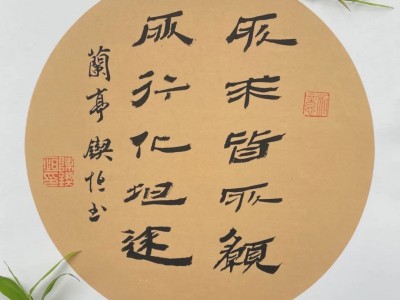 所求皆所願
所行化坦途
蘭亭鍥恒书